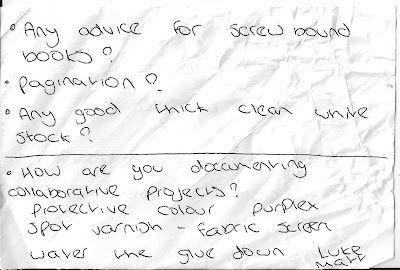 • Any advice for screw bound
books?
• Pagination?
• Any good thick clean white
stock?
• How are you documenting
collaborative projects?
protective colour purplex
spot varnish - fabric screen
water the glue down Luke
Matt